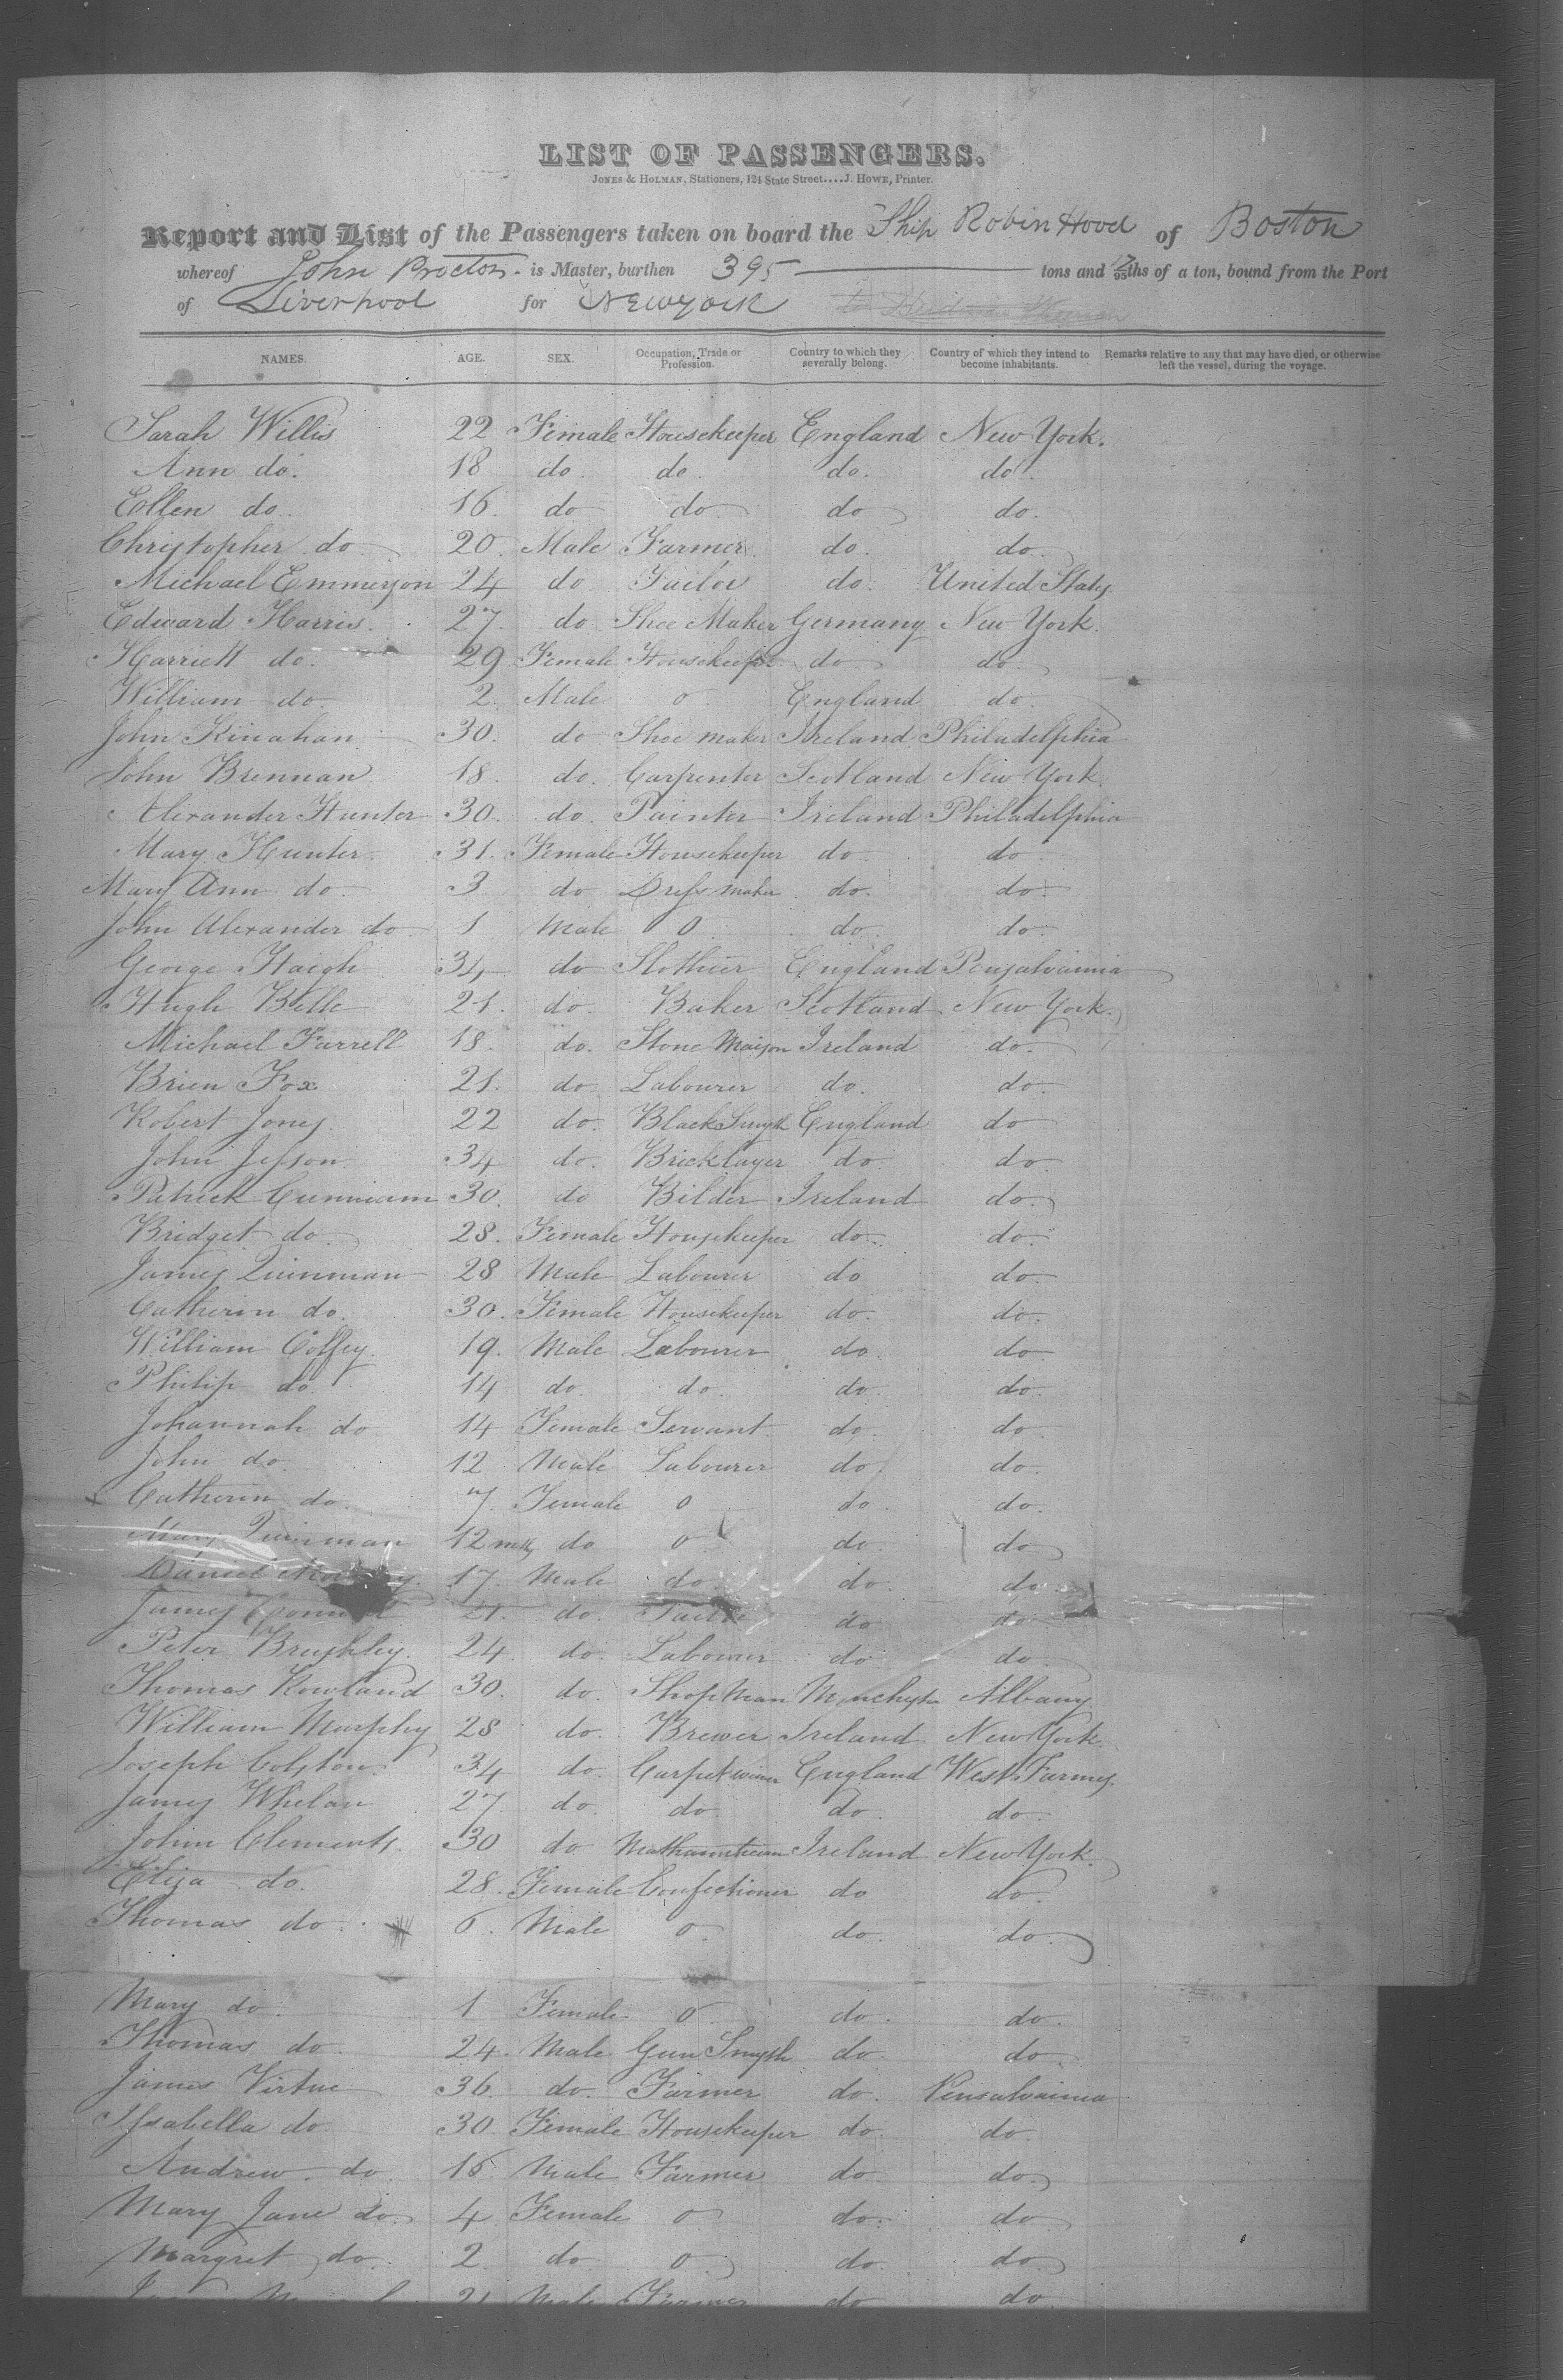 LIST OF PASSENGERS.
JONES & HOLMAN, Stationers, 124 State Street....J. HOWE, Printer.
Report and List of the Passengers taken on board the Ship Robin Hood of Boston
whereof John Proctor is Master, burthen 395 tons and 95ths of a ton, bound from the Port
of Liverpool for Newyork
NAMES. AGE. SEX. Occupation, Trade or Profession. Country to which they severally belong. Country of which they intend to become inhabitants. Remarks relative to any that may have died, or otherwise left the vessel, during the voyage.
Sarah Willis 22 Female Housekeeper England New York.
Ann do. 18 do do. do. do.
Ellen do. 16. do do do do.
Christopher do 20. Male Farmer. do. do.
Michael Emmerson 24 do Tailor do. United States
Edward Harris. 27. do Shoe Maker Germany New York.
Harriett do. 29 Female Housekeeper do. do.
William do. 2. Male o England do.
John Kinahan 30. do Shoe maker Ireland Philadelphia
John Brennan. 18. do. Carpenter Scotland New York.
Alexander Hunter 30. do. Painter Ireland Philadelphia
Mary Hunter. 31. Female Housekeeper do. do.
Mary Ann do. 3 do Dress maker do. do.
John Alexander do. 1 Male 0 do. do.
George Haigh 34 do Slothier England Pensalvainia
Hugh Bille 21. do. Baker Scotland New York.
Michael Farrell 18. do. Stone Maison Ireland do.
Brien Fox 21. do. Labourer do. do.
Robert Jones 22 do. BlackSmyth England do
John Jefson 34 do. Bricklayer do. do.
Patrick Cunniam 30. do Bilder Ireland do.
Bridget do. 28. Female Housekeeper do. do.
James Quinman 28 Male Labourer do do.
Catherin do. 30. Female Housekeeper do. do.
William Coffey. 19. Male Labourer do. do.
Philip do. 14 do. do. do. do.
Johannah do 14 Female Servant do. do.
John do. 12 Male Labourer do. do.
x Catherin do. 7. Female o do. do.
Mary Quinman 12 mths do o do. do.
Daniel 17. Male do. do. do.
James 21. do. Tailor do do.
Peter Brughley. 24. do. Labourer do. do.
Thomas Rowland 30. do. Shop Man Manchyster Albany.
William Murphy 28 do. Brewer Ireland New York.
Joseph Colston. 34 do. Carpet England West Farmes.
James Whelan 27. do. do. do. do.
John Clements. 30 do Mathamitician Ireland New York.
Eliza do. 28. Female Confectioner do do.
Thomas do. 6. Male o do. do.
Mary do. 1 Female o do. do.
Thomas do. 24. Male Gun Smyth do. do.
James Virtue 36. do. Farmer do. Pensalvainia
Issabella do. 30. Female Housekeeper do. do.
Andrew. do 16 Male Farmer do. do.
Mary Jane do. 4 Female o do. do.
Margret do. 2 do o do. do.
21 Male Farmer do do